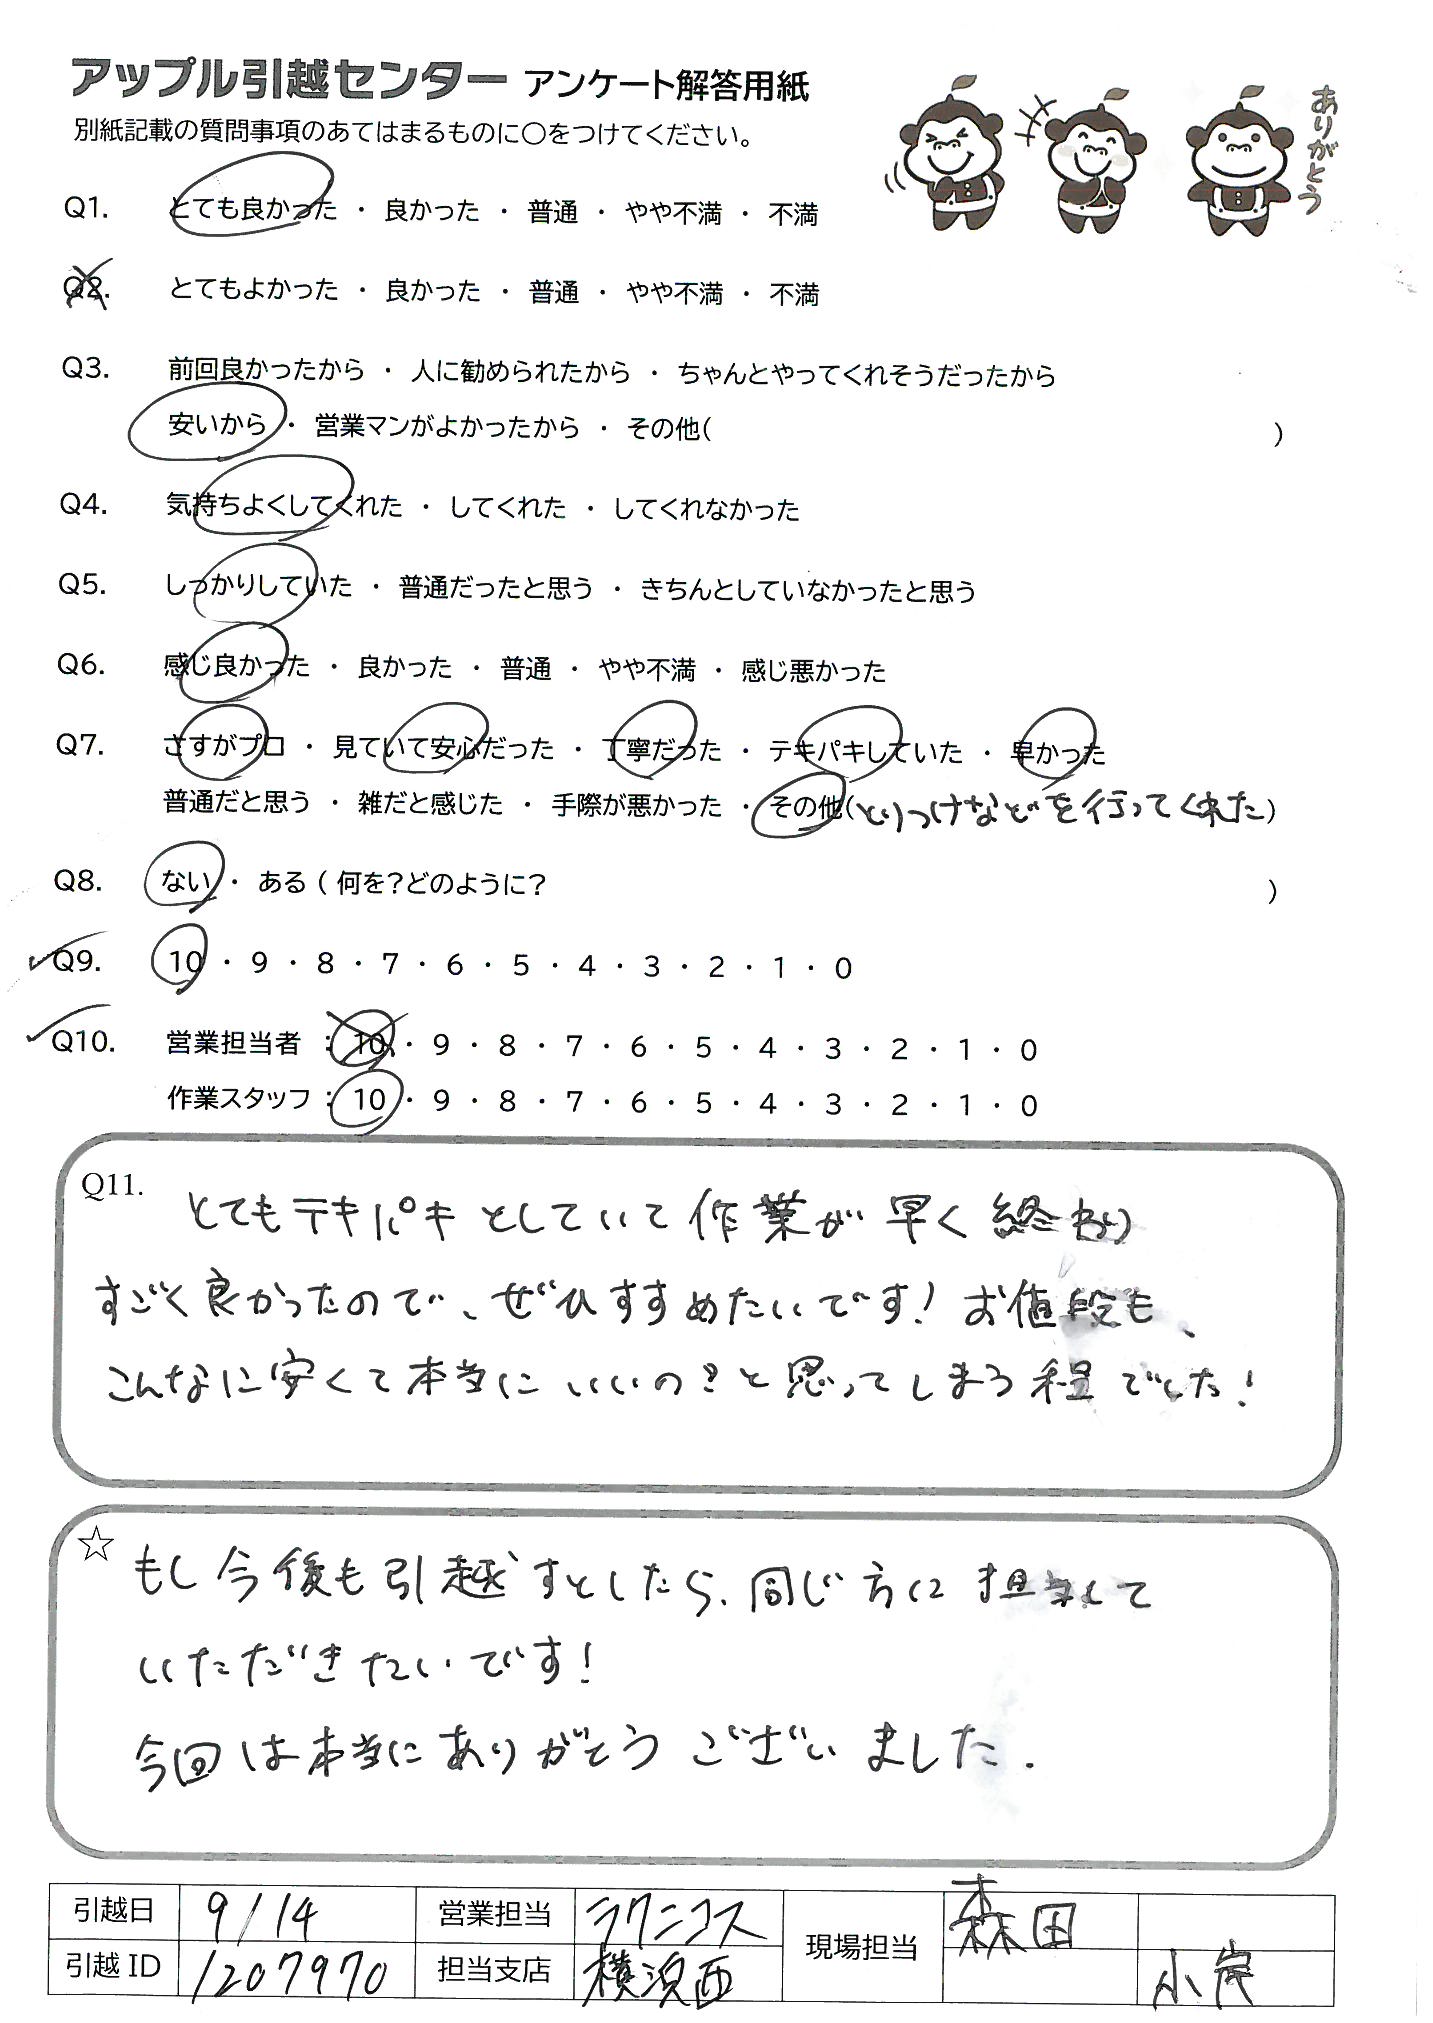 アップル引越センター アンケート解答用紙
別紙記載の質問事項のあてはまるものに〇をつけてください。
ありがとう
Q1. とても良かった ・ 良かった ・ 普通 ・ やや不満 ・ 不満
Q2. とてもよかった ・ 良かった ・ 普通 ・ やや不満 ・ 不満
Q3. 前回良かったから ・ 人に勧められたから ・ ちゃんとやってくれそうだったから
安いから ・ 営業マンがよかったから ・ その他( )
Q4. 気持ちよくしてくれた ・ してくれた ・ してくれなかった
Q5. しっかりしていた ・ 普通だったと思う ・ きちんとしていなかったと思う
Q6. 感じ良かった ・ 良かった ・ 普通 ・ やや不満 ・ 感じ悪かった
Q7. さすがプロ ・ 見ていて安心だった ・ 丁寧だった ・ テキパキしていた ・ 早かった
普通だと思う ・ 雑だと感じた ・ 手際が悪かった ・ その他(とりつけなどを行ってくれた)
Q8. ない ・ ある ( 何を?どのように? )
Q9. 10 ・ 9 ・ 8 ・ 7 ・ 6 ・ 5 ・ 4 ・ 3 ・ 2 ・ 1 ・ 0
Q10. 営業担当者 : 10 ・ 9 ・ 8 ・ 7 ・ 6 ・ 5 ・ 4 ・ 3 ・ 2 ・ 1 ・ 0
作業スタッフ : 10 ・ 9 ・ 8 ・ 7 ・ 6 ・ 5 ・ 4 ・ 3 ・ 2 ・ 1 ・ 0
Q11. とてもテキパキとしていて作業が早く終わり
すごく良かったので、ぜひすすめたいです! お値段も、
こんなに安くて本当にいいの?と思ってしまう程でした!
☆ もし今後も引越すとしたら、同じ方に担当して
いただきたいです!
今回は本当にありがとうございました.
引越日 9/14 営業担当 ラクニコス 現場担当 森田
引越 ID 1207970 担当支店 横浜西 小岸